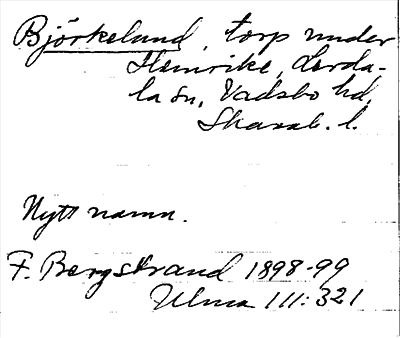 Björkelund, torp under
Henrike, Lerda-
la sn, Vadsbo hd,
Skarab. l.
Nytt namn.
F. Bergstrand 1898-99
Ulma 111:321